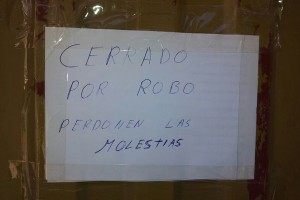 CERRADO
POR ROBO
PERDONEN LAS
MOLESTIAS